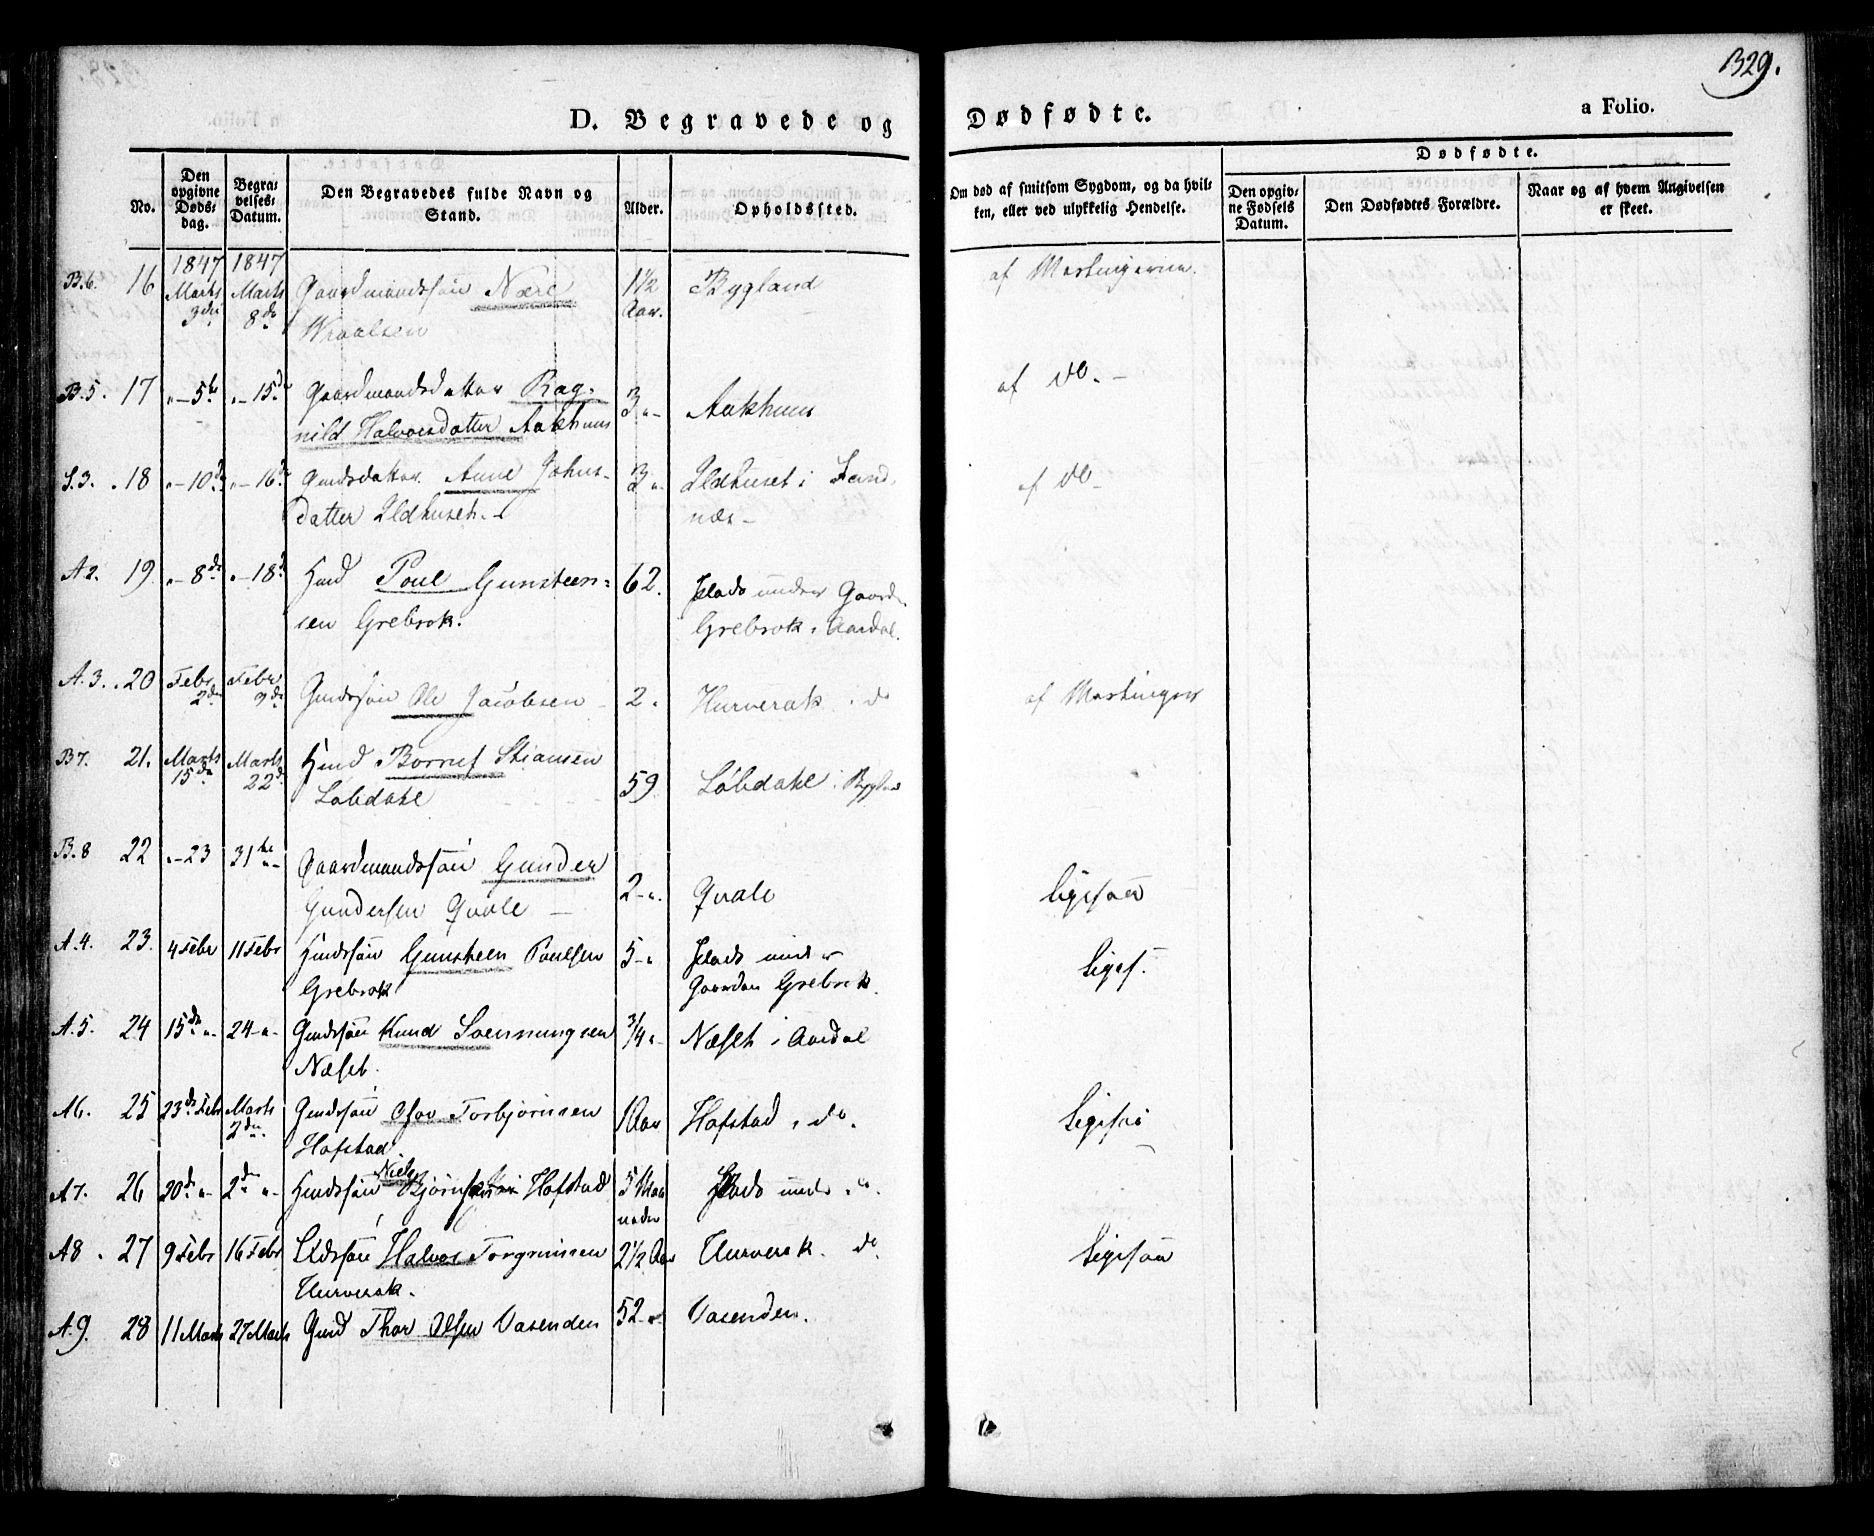 329.
D. Begravede og Dødfødte.
a Folio.
No.
Den opgivne Døds-dag.
Begra-velses-Datum.
Den Begravedes fulde Navn og Stand.
Alder.
Opholdssted.
Om død af smitsom Sygdom, og da hvil-
ken, eller ved ulykkelig Hendelse.
Dødfødte.
Den opgiv-ne Fødsels Datum.
Den Dødfødtes Forældre.
Naar og af hvem Angivelsen er skeet.
B.6. 16 1847 Marts 3die 1847 Marts 8de Gaardmandssøn 1½ Aar. Bygland af
B.5. 17 "-5te "-15de Gaardmandsdatter Rag-
nild Halvorsdatter Aakhuus 3"- Aakhuus af do.-
S.3. 18 "-10de "-16de Gmdsdatter Anne Johns-
datter Ildhuset.- 3" Ildhuset i Sand-
næs- af do-
A2. 19 "-8de "-18de Hmd Poul Gunsteen-
sen Grebrok. 62. Plads under Gaarden
Grebrok i Aardal.
A.3. 20 Febr 2den Febr 9de Gmdssøn Ole Jacobsen 2. Hurverak do af
B7. 21. Marts 15de Marts 22de Hmd Stiansen
Løbdahl 59. Løbdahl i Bygland
B.8 22 "-23 31te"- Gaardmandssøn Gunder
Gundersen Qvale 2-". Qvale Ligesaa
A.4. 23. 4 Febr 11 Febr Hmdssøn Gunsteen Poulsen
Grebrok 5-" Plads under
Gaarden Grebrok. Liges.
A.5. 24 15de"- 24-"- Gmdssøn Knud
Næset. 3/4" Næset i Aardal
A6. 25 23de Febr Marts 2den Gmdssøn Torbjørnsen
Hofstad. 1 Aar Hofstad i do. Ligesaa
A7. 26 20de"- 2de"- Hmdssøn Niels Hofstad 5 Maa-
neder Plads under do.
A8. 27 9 Febr 16 Febr Halvor Torgrimsen
Hurverak. 2½ Aar Hurverak. do Ligesaa
A.9. 28 11 Marts 27 Marts Gmd Thor Olsen Vasenden 52-" Vasenden.